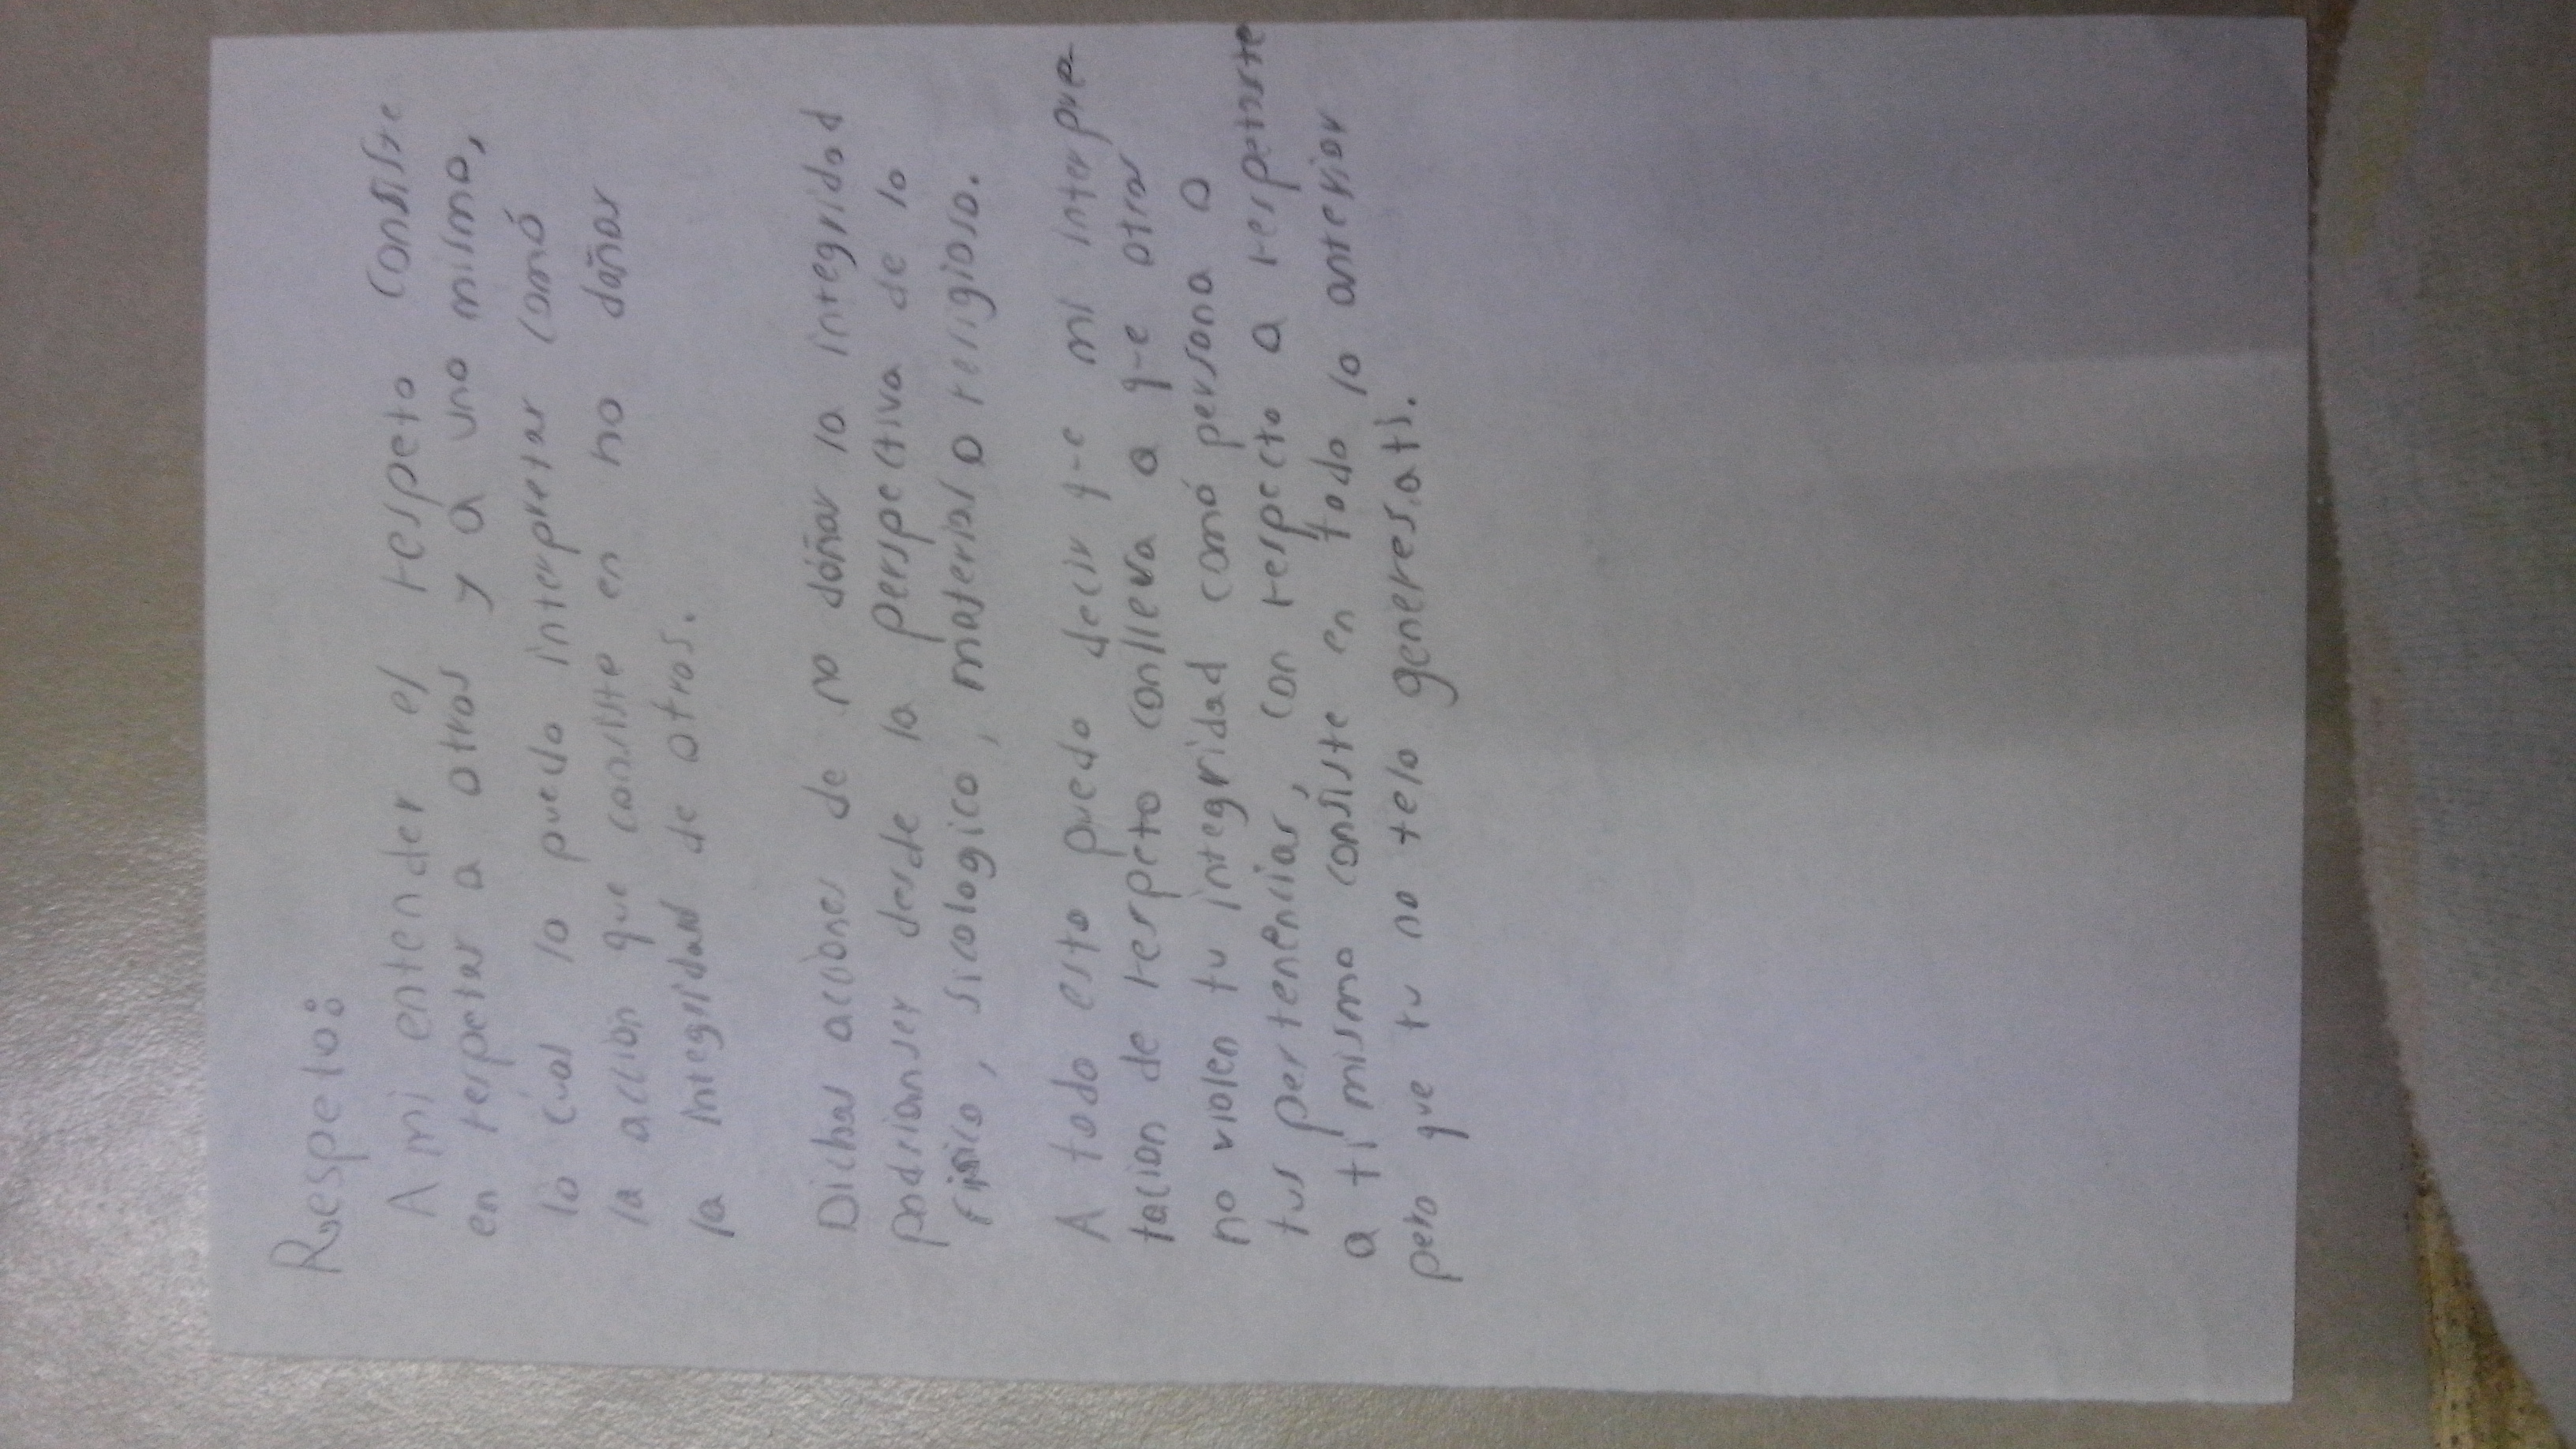 Respeto:
A mi entender el respeto consiste
en respetar a otros y a uno mismo,
lo cual lo puedo interpretar comó
la accion que consiste en no dañar
la integridad de otros.
Dichas acciones de no dáñar la integridad
podrianser desde la perspectiva de lo
fisico, sicologico, material o religioso.
A todo esto puedo decir que mi interpre-
tacion de respeto conlleva a que otros
no violen tu integridad comó persona o
tus pertenencias, con respecto a respetarte
a ti mismo consiste en todo lo anterior
pero que tu no telo generes a ti.